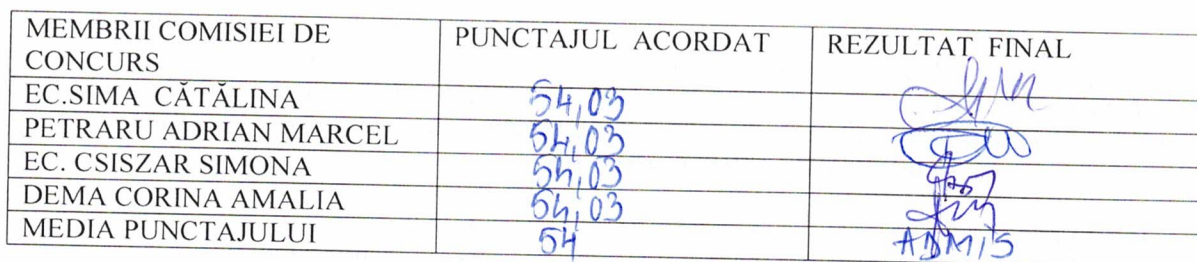 MEMBRII COMISIEI DE CONCURS PUNCTAJUL ACORDAT REZULTAT FINAL
EC.SIMA CĂTĂLINA 54,03
PETRARU ADRIAN MARCEL 54,03
EC. CSISZAR SIMONA 54,03
DEMA CORINA AMALIA 54,03
MEDIA PUNCTAJULUI 54 ADMIS